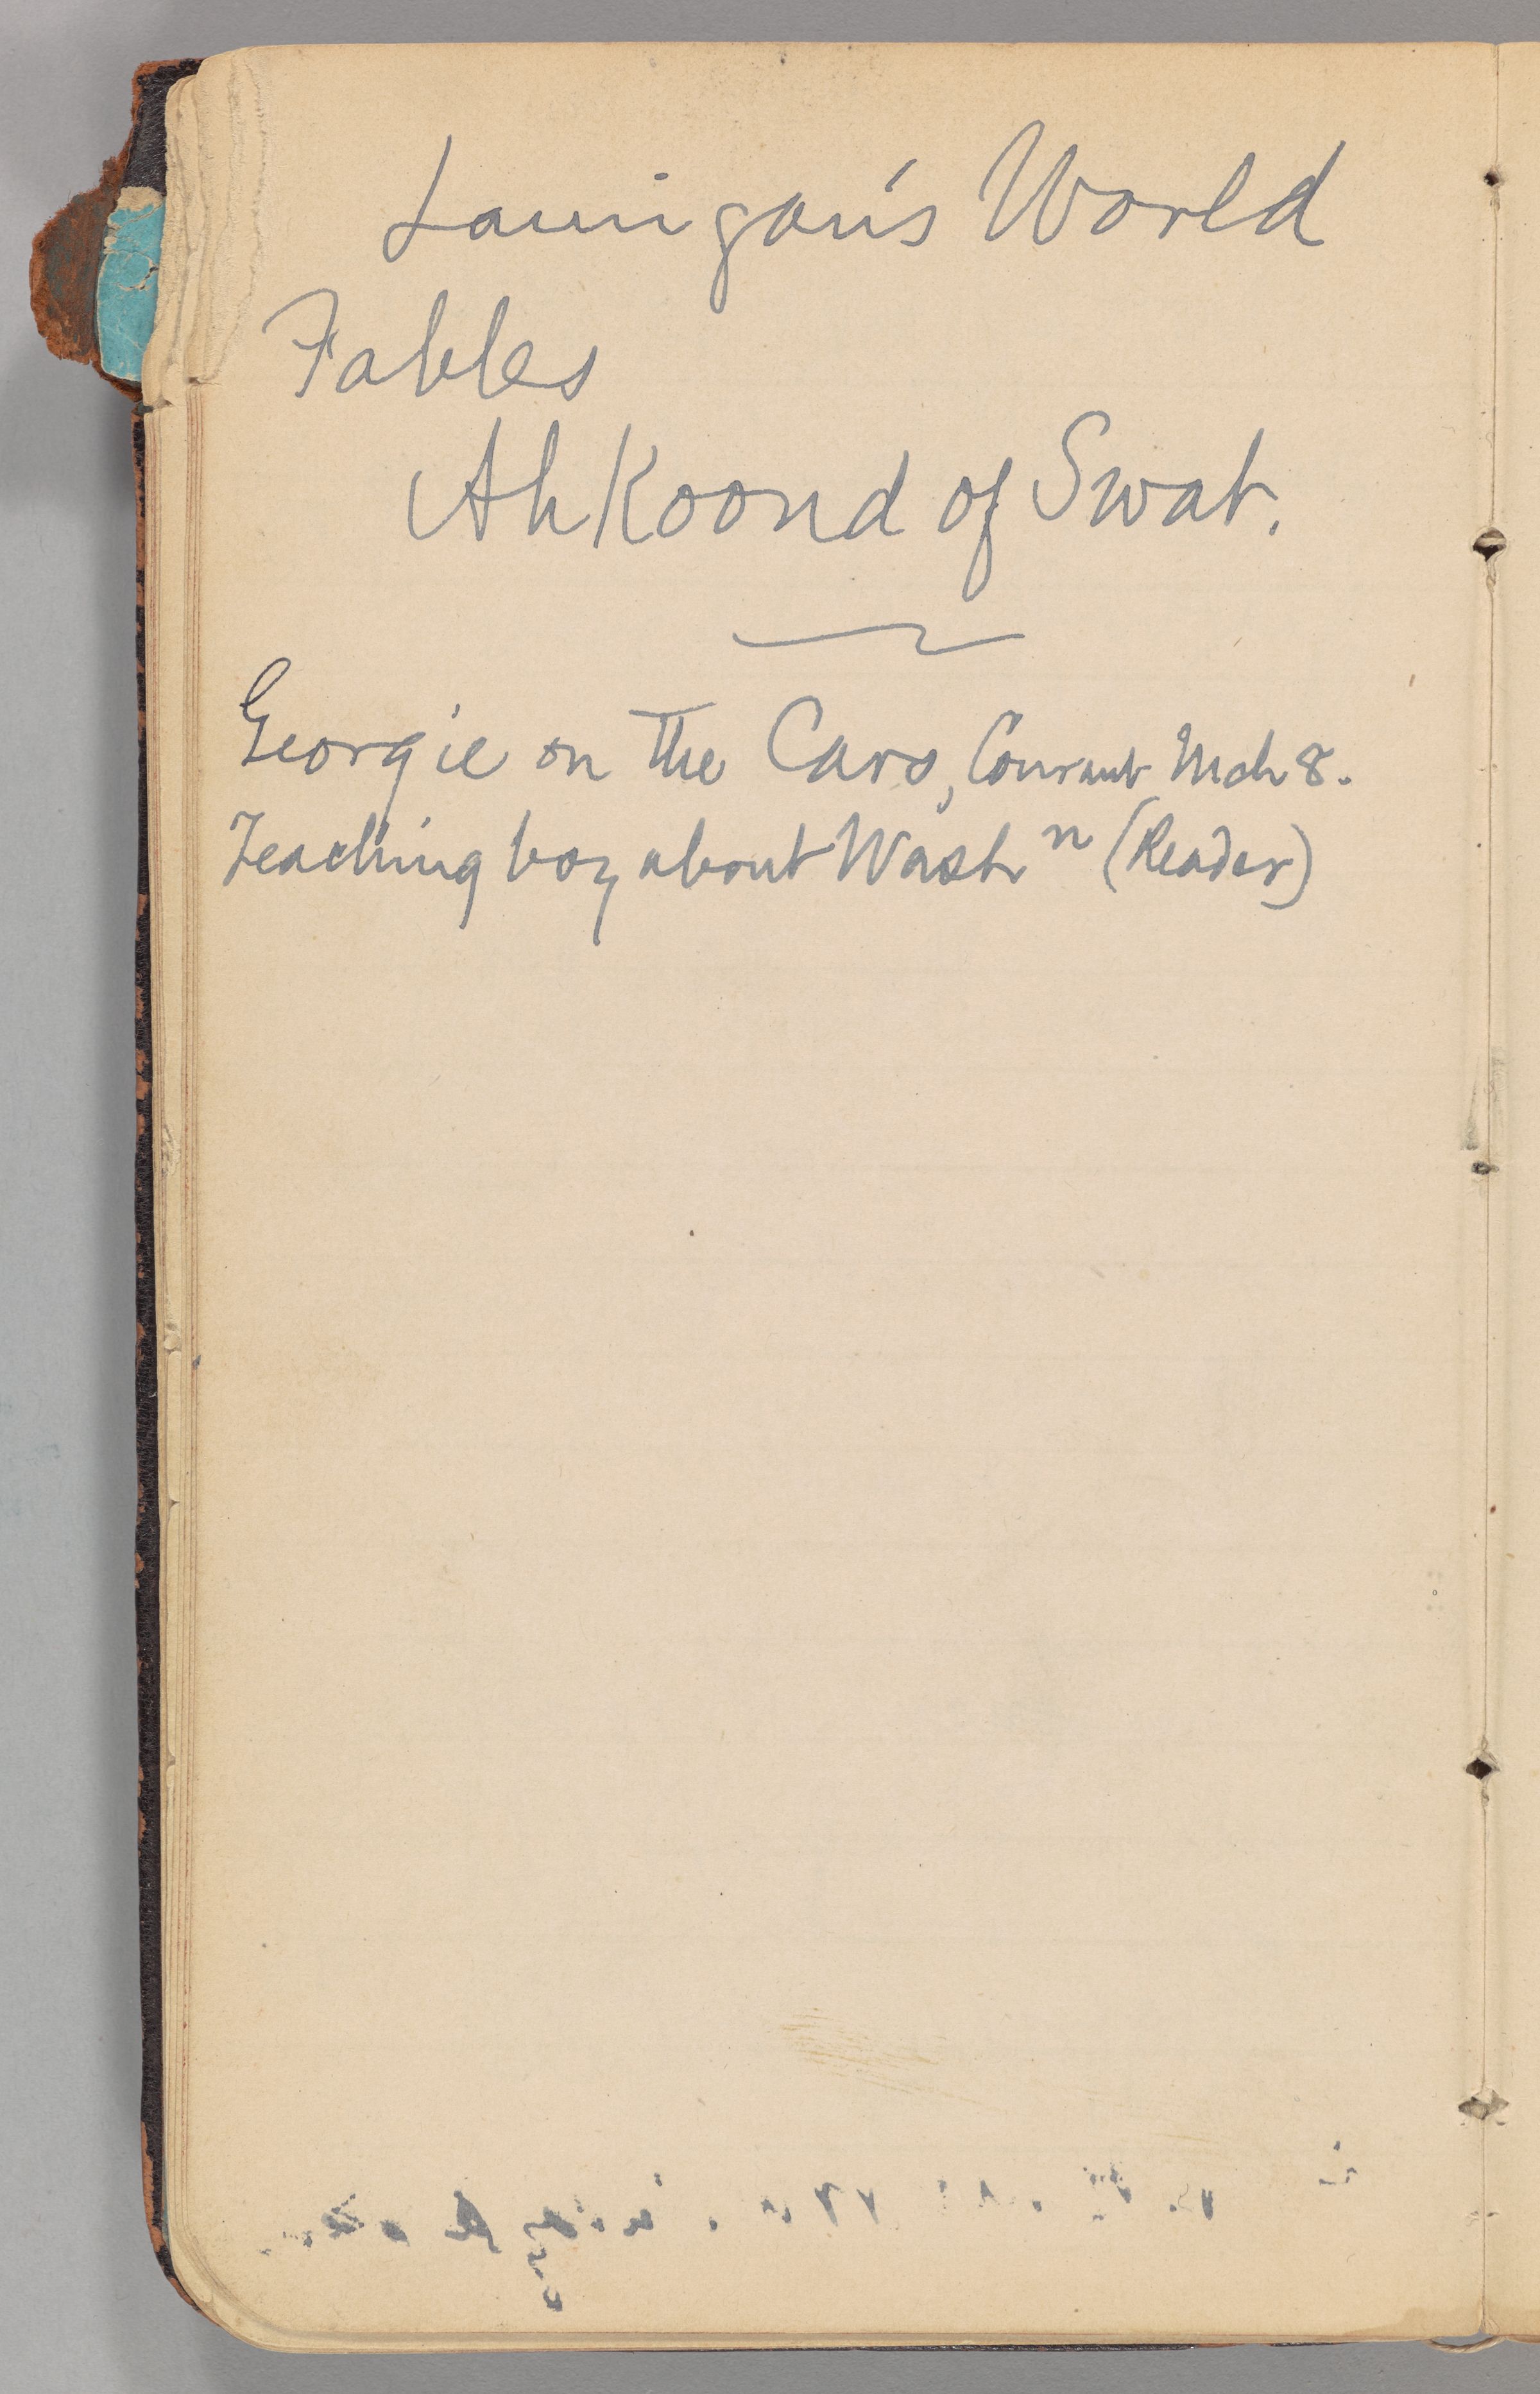 Lannigan's World
Fables
AhKoond of Swat.
Georgie on the Cars, Courant Mch 8.
Teaching boy about Washⁿ (Reader)